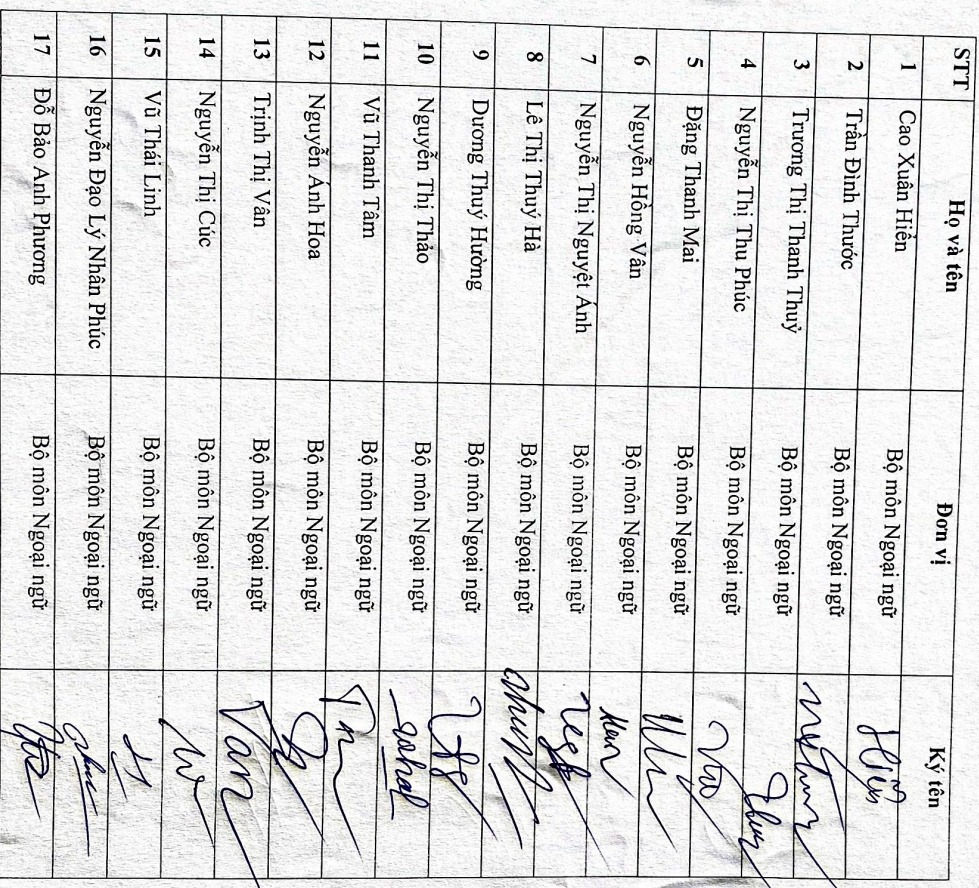 STT Họ và tên Đơn vị Ký tên
1 Cao Xuân Hiển Bộ môn Ngoại ngữ Hiển
2 Trần Đình Thước Bộ môn Ngoại ngữ
3 Trương Thị Thanh Thuỷ Bộ môn Ngoại ngữ
4 Nguyễn Thị Thu Phúc Bộ môn Ngoại ngữ
5 Đặng Thanh Mai Bộ môn Ngoại ngữ
6 Nguyễn Hồng Vân Bộ môn Ngoại ngữ
7 Nguyễn Thị Nguyệt Ánh Bộ môn Ngoại ngữ
8 Lê Thị Thuý Hà Bộ môn Ngoại ngữ
9 Dương Thuý Hường Bộ môn Ngoại ngữ
10 Nguyễn Thị Thảo Bộ môn Ngoại ngữ
11 Vũ Thanh Tâm Bộ môn Ngoại ngữ
12 Nguyễn Ánh Hoa Bộ môn Ngoại ngữ
13 Trịnh Thị Vân Bộ môn Ngoại ngữ Van
14 Nguyễn Thị Cúc Bộ môn Ngoại ngữ
15 Vũ Thái Linh Bộ môn Ngoại ngữ
16 Nguyễn Đạo Lý Nhân Phúc Bộ môn Ngoại ngữ
17 Đỗ Bảo Anh Phương Bộ môn Ngoại ngữ